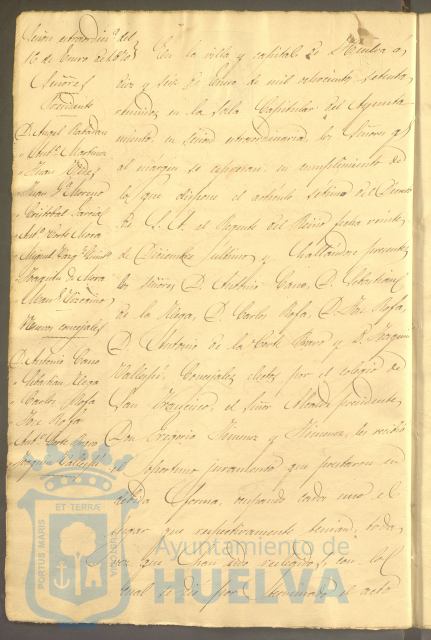 Sesion extraordinª del
16 de Enero de 1870
Señores
Presidente
D. Angel Rabadan
" Antº Martinez
" Juan
" Juan Gª Moreno
" Cristobal Garcia
" Antº Corte Mora
Miguel
Joaquin de Mora
Manl Vizcaino
Nuevos concejales
D. Antonio Cano
" Sebastian Riega
" Carlos Rofa
" Jose Rofa
" Antº Corte Bravo
Joaquin Vallespí
En la villa y capital de Huelva á
diez y seis de Enero de mil ochocientos setenta,
reunidos en la Sala Capitular del Ayunta
miento en sesion extraordinaria los Señores qe
al margen se espresan en cumplimiento de
lo que dispone el artículo setimo del Decreto
de S. A. el Regente del Reino fecha veinte
de Diciembre ultimo y hallandose presentes
los señores D. Antonio Cano, D. Sebastian
de la Riega, D. Carlos Rofa, D. Jose Rofa,
D. Antonio de la Corte Bravo y D. Joaquin
Vallespí, Concejales electos por el colegio de
San Francisco, el señor Alcalde presidente,
Don Gregorio Jimenez y Jimenez, les recibió
el oportuno juramento que prestaron en
debida forma, ocupando cada uno el
lugar que respectivamente tenian, toda
vez que han sido reelegidos, con lo
cual se dió por terminado el acto
PORTUS MARIS
ET TERRÆ
CUSTODIA
Ayuntamiento de
HUELVA